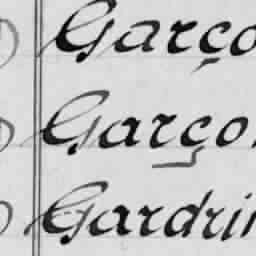 Garço
Garço
Gardri